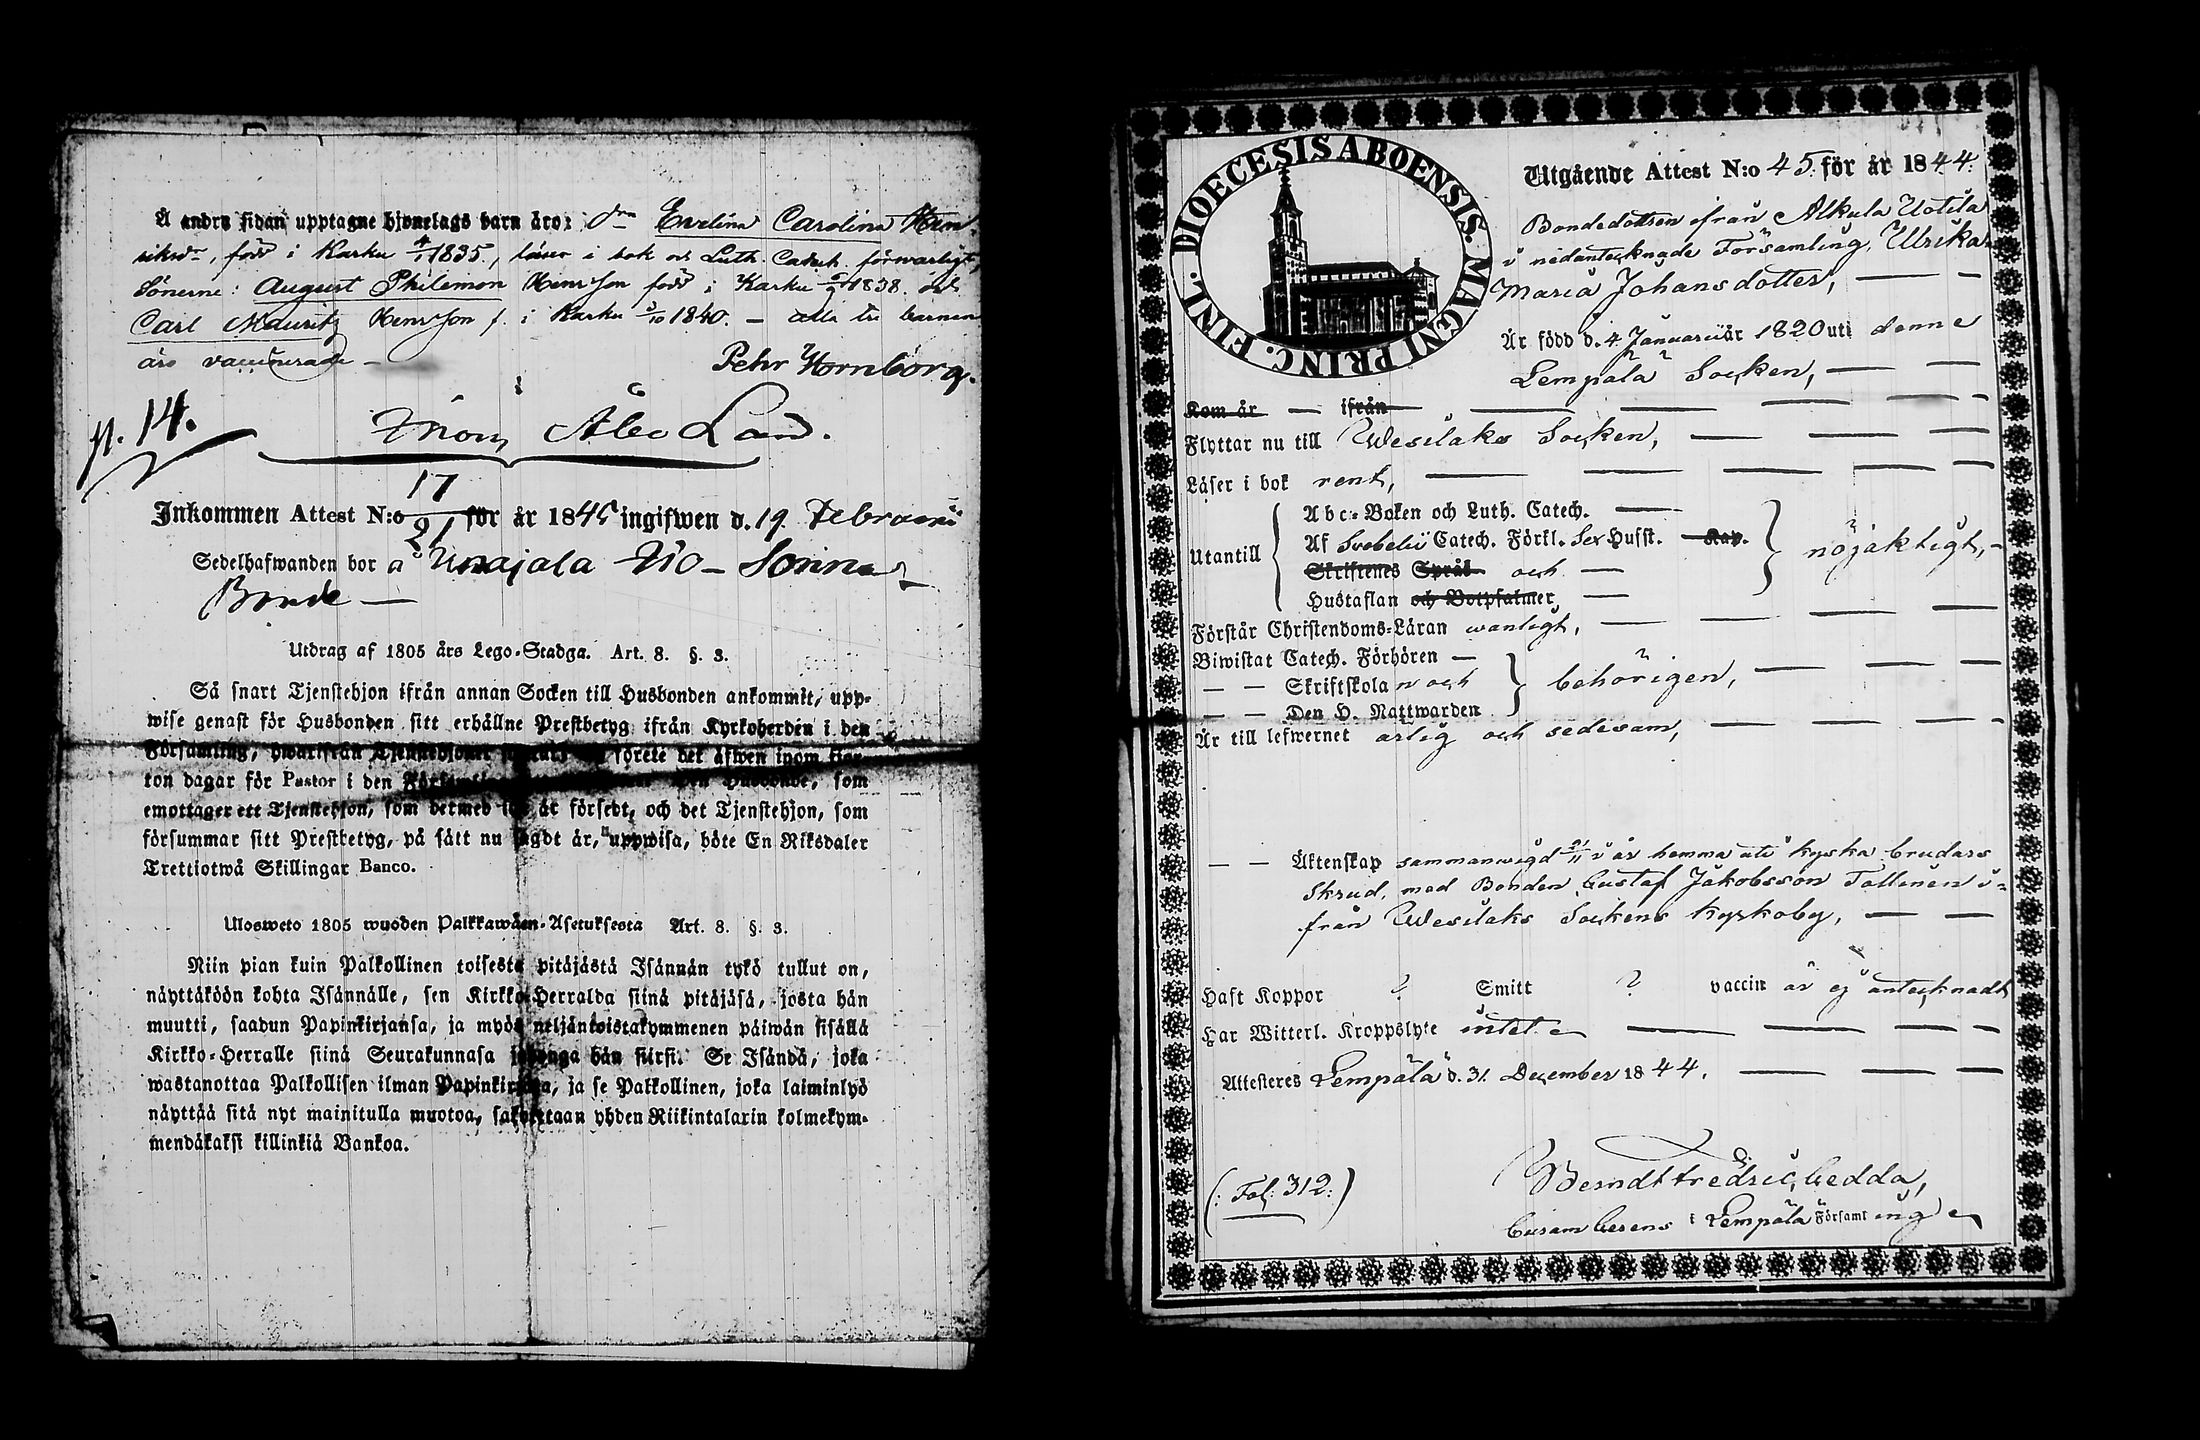 Å andra sidan upptagne hjonelags barn äro: dra Evelina Carolina Hen-
riksdr, född i Karku 4/1 1835, läser i bok och Luth. Catech. försvarligt,
Sönerne: August Philemon Henrsson född i Karku 1838. och
Carl Mauritz Henrsson f. i Karku 5/10 1840. — alla tre barnen
äro vaccinerade —
Pehr Hornborg.
p. 14.
Åbo Län.
Inkommen Attest N:o 17/21 för år 1845 ingifwen d. 19 Februarii
Sedelhafwanden bor å Unajala
Bonde —
Utdrag af 1805 års Lego-Stadga. Art. 8. §. 3.
Så snart Tjenstehjon ifrån annan Socken till Husbonden ankommit, upp-
wise genast för Husbonden sitt erhållne Prestbetyg ifrån Kyrkoherden i den
Församling, hwarifrån Tjenstehjonet förete det äfwen inom fjor-
ton dagar för Pastor i den Husbonde, som
emottager ett Tjenstehjon, som dermed är försedt, och det Tjenstehjon, som
försummar sitt Prestbetyg, på sätt nu sagdt är, uppwisa, böte En Riksdaler
Trettiotwå Skillingar Banco.
Ulosweto 1805 wuoden Palkkawäen-Asetuksesta Art. 8. §. 3.
Niin pian kuin Palkollinen toisesta pitäjästä Isännän tykö tullut on,
näyttäköön kohta Isännälle, sen Kirkko-Herralda siinä pitäjäsä, josta hän
muutti, saadun Papinkirjansa, ja myös neljäntoistakymmenen päiwän sisällä
Kirkko-Herralle siinä Seurakunnasa johonga hän siirsi. Se Isändä, joka
wastanottaa Palkollisen ilman Papinkirjata, ja se Palkollinen, joka laiminlyö
näyttää sitä nyt mainitulla muotoa, sakotetaan yhden Riikintalarin kolmekym-
mendäkaksi killinkiä Bankoa.
DIOECESIS ABOENSIS. MAGNI PRINC. FINL.
Utgående Attest N:o 45 för år 1844.
Bondedottren ifrån Alkula Uotila
i nedantecknade Församling, Ulrika
Maria Johansdotter, — —
Är född d. 4 Januarii år 1820 uti denne
Lempälä Socken, — —
Kom år — ifrån — — — — —
Flyttar nu till Wesilaks Socken, — — —
Läser i bok rent, — — — — —
Utantill
Abc-Boken och Luth. Catech. —
Af Svebelii Catech. Förkl. Sex Hufst. Kap.
Skriftenes Språk och —
Hustaflan och Botpsalmer —
nöjaktigt, —
Förstår Christendoms-Läran wanligt, — — — —
Biwistat Catech. Förhören —
— — Skriftskolan och
— — Den H. Nattwarden
behörigen, — — —
Är till lefwernet ärlig och sedesam, — — — —
— — Äktenskap sammanwigd 21/11 i år hemma uti kyska brudars
Skrud, med Bonden Gustaf Jakobsson Tollinen i-
från Wesilaks Sockens Kyrkoby, — —
Haft Koppor ? Smitt ? vaccin är ej antecknadt
Har Witterl. Kroppslyte intet — — — —
Attesteres Lempälä d. 31 December 1844. — — —
(: Fol: 312:)
Berndt Fredric Gedda,
Curam Gerens i Lempälä Församling